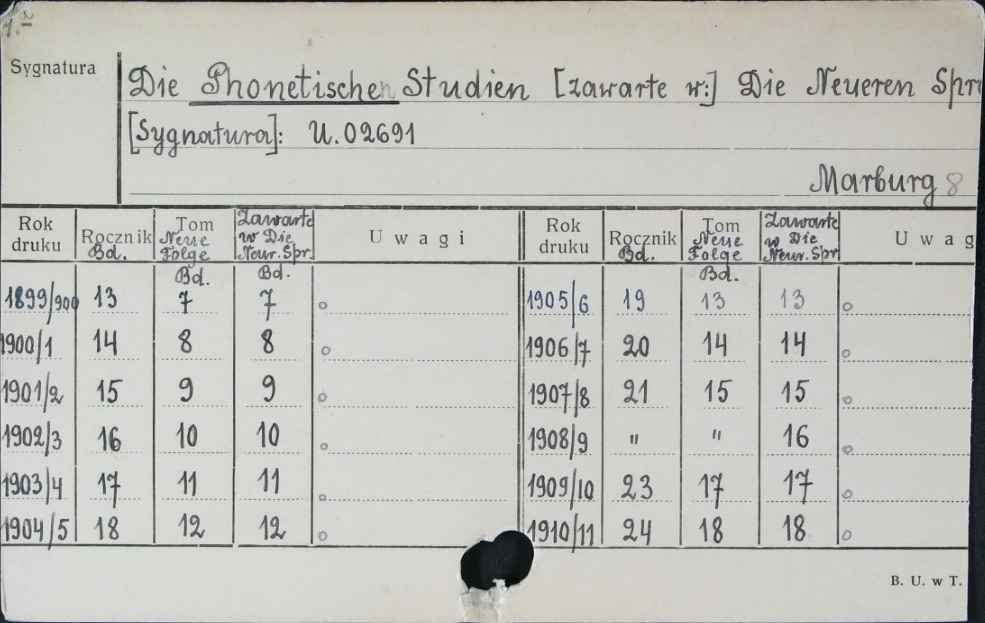 Sygnatura
Die Phonetischen Studien [zawarte w:] Die Neueren Spr
[Sygnatura]: U.02691
Marburg 8
Rok druku Rocznik Bd. Tom Neue Folge Bd. Zawarte w Die Neur. Spr. Bd. Uwagi Rok druku Rocznik Bd. Tom Neue Folge Bd. Zawarte w Die Neur. Spr Uwag
1899/900 13 7 7 1905/6 19 13 13
1900/1 14 8 8 1906/7 20 14 14
1901/2 15 9 9 1907/8 21 15 15
1902/3 16 10 10 1908/9 " " 16
1903/4 17 11 11 1909/10 23 17 17
1904/5 18 12 12 1910/11 24 18 18
B. U. w T.